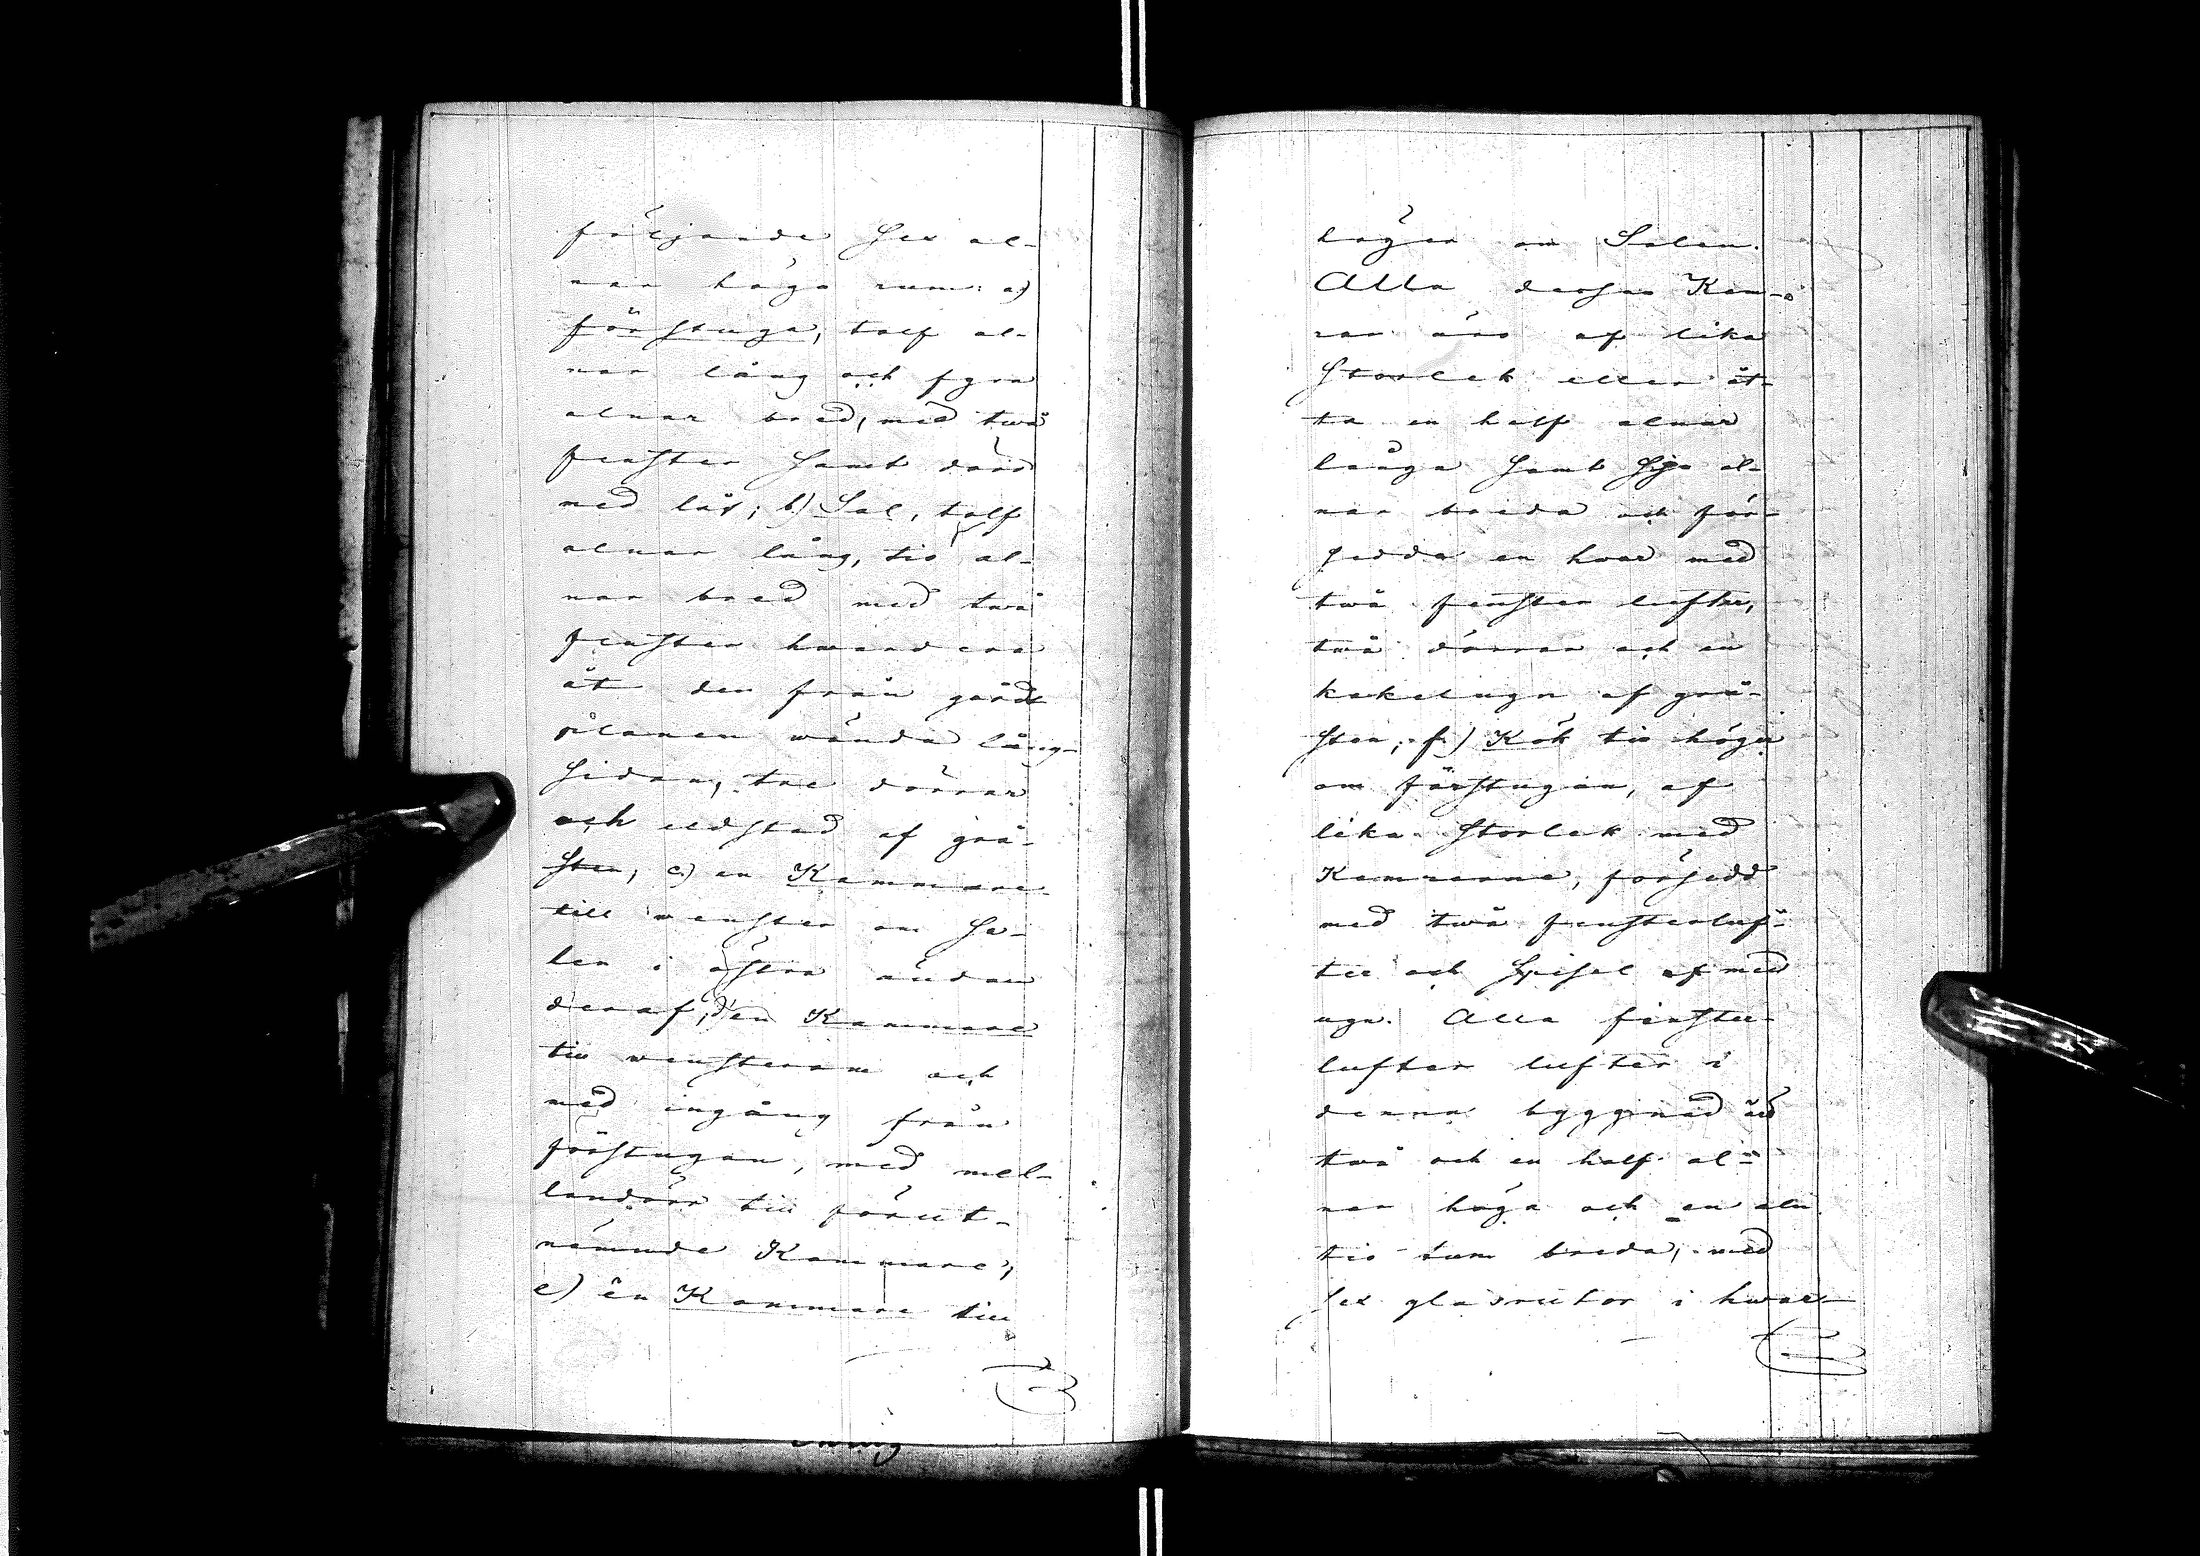 följande sex al-
nar höga rum: a)
förstuga, tolf al-
nar lång och fyra
alnar bred, med twå
fenster samt dörr
med lås; b) Sal, tolf
alnar lång, tio al-
nar bred med twå
fenster hvardera
åt den från gårds
planen wända lång-
sidan, tre dörrar
och eldstad af grå-
sten, c.) en Kammare
till wenster om Sa-
len i östra ändan
deraf; d) en Kammare
till wensterom och
med ingång från
förstugan, med mel-
landörr till förut-
nämnde Kammare;
e) en Kammare till
höger om Salen.
Alla dessa Kam-
rar äro af lika
Storlek eller åt-
ta en half alnar
långa samt sju al-
nar breda och för-
sedda en hvar med
twå fenster lufter,
twå dörrar och en
kakelugn af grå-
sten; f.) Kök till höger
om förstugan, af
lika storlek med
Kamrarne, försedd
med twå fensterluf-
ter och Spisel af med
ugn. Alla fenster-
lufter lufter i
denna byggnad äro
twå och en half al-
nar höga och en aln
tio tum breda, med
sex glasrutor i hwar-